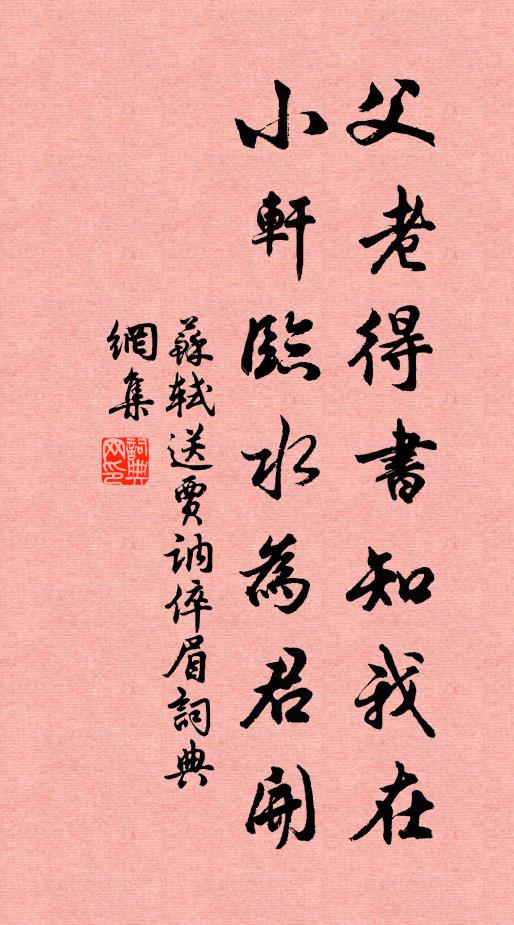 父老得書知我在
小軒臨水為君開
蘇軾送賈訥倅眉詞典
網集
詞典網印